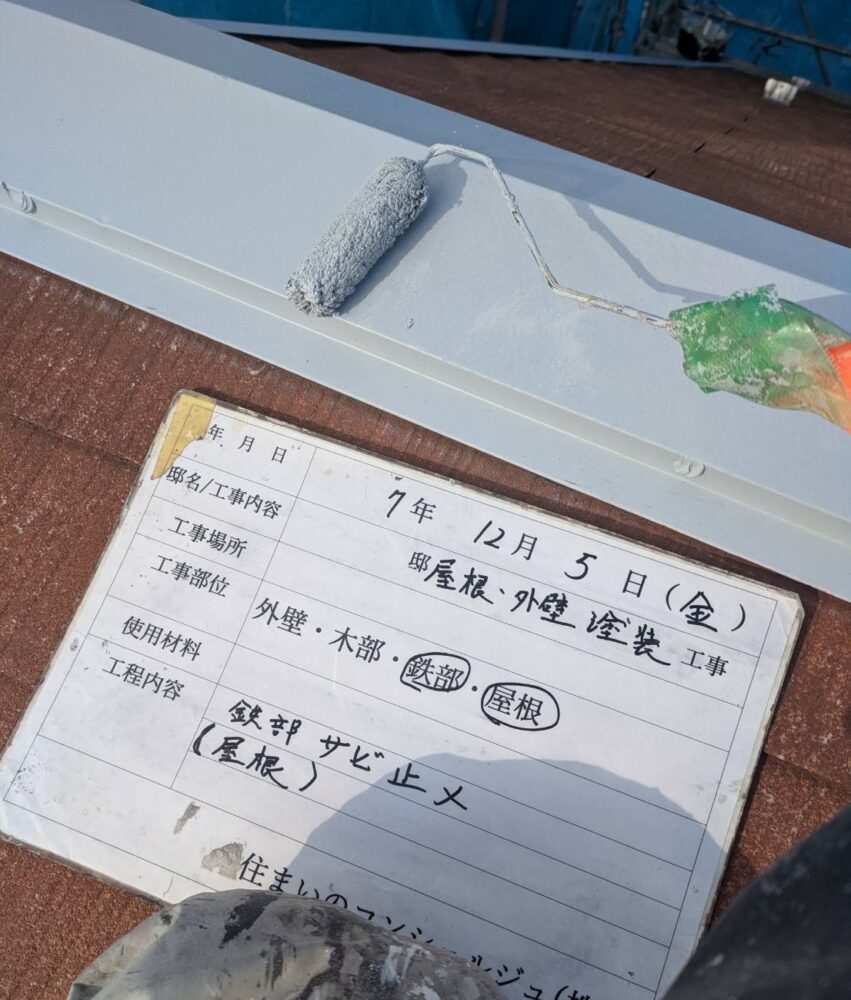 年 月 日 7年 12月 5日(金)
邸名/工事内容 邸 屋根・外壁 塗装 工事
工事場所
工事部位 外壁・木部・鉄部・屋根
使用材料
工程内容 鉄部 サビ止メ
(屋根)
住まいのコンシェルジュ(